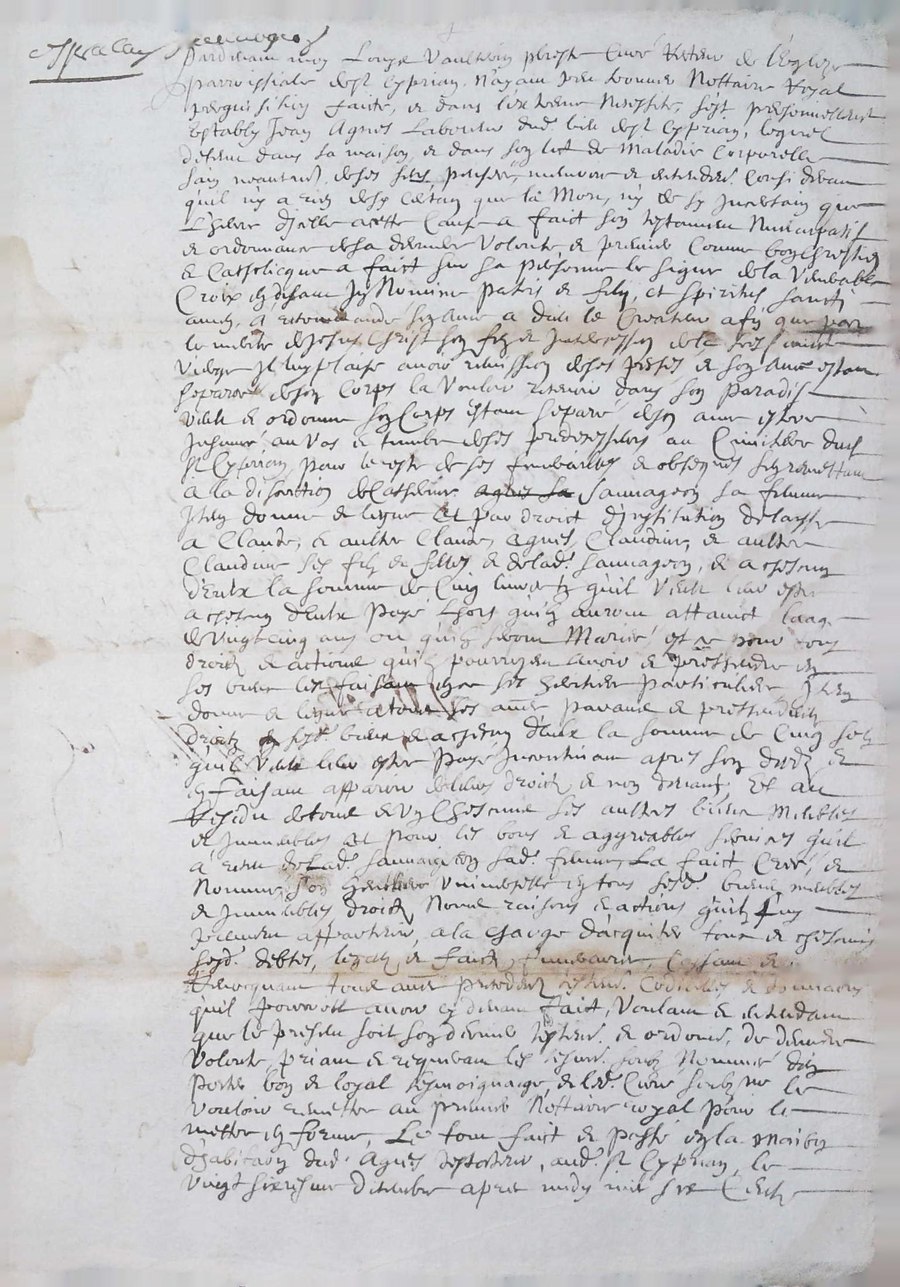 Pardevant moy Louys Vaultrin pbre Curé Recteur de l'Esglize
parrossiale de St Cyprian, n'ayant peu trouver Nottaire Royal
perquisition faicte, et dans l'extreme necessité, s'est personnellement
estably Jean Agnes Laboureur dud. lieu de St Cyprian, lequel
detenu dans sa maison et dans son lict de maladie corporelle
sain neantmoins de ses sens, pensée, memoire et entendemt. Considerant
qu'il n'y a rien de si certain que la Mort, ny de si incertain que
l'heure d'icelle a cette cause a faict son testament nuncupatif
et ordonnance de sa derniere volonté et premier comme bon chrestien
et Catholicque a faict sur sa personne le signe de la venerable
Croix en disant In Nomine patris et filij, et spiritus sancti
amen, a recommandé son ame a dieu le Createur afin que par
le merite de Jesus Christ son filz et intercession de la tres saincte
vierge Il luy plaise avoir remission de ses pechés et son ame estant
separée de son Corps la vouloir recevoir dans son Paradis
veult et ordonne son Corps estant separé de son ame estre
inhumé au vas et tumbe de ses predecesseurs au Cimitiere dud.
St Cyprian, pour le reste de ses funerailles et obseques s'en remettant
a la discretion de Catherine Sauvageon sa femme
Item donne et legue et par droict d'institution delaisse
a Claude, et aultre Claude, Agnes, Claudine, et aultre
Claudine ses filz et filles et de lad. Sauvageon, et a chescung
d'eulx la somme de Cinq livres tz qu'il veult leur estre
a chescung d'eulx payé lhors qu'ilz auront attainct l'aage
de vingt cinq ans ou qu'ilz seront mariés et ce pour tous
droictz et actions qu'ilz pourroyent avoir et prethendre en
ses biens les faisant en ce ses heritiers particuliers, Item
donne et legue a tous ses aultres parans et prethendantz
droictz en sesd. biens et a chescung d'eulx la somme de Cinq solz
qu'il veult leur estre payé incontinant apres son decedz et
en faisant apparoir de leurs droictz et non devant, Et au
Residu de tous et ung chescung ses aultres biens meubles
et immeubles et pour les bons et aggreables services qu'il
a receu de lad. Sauvaigeon sad. femme, La faict Creé, et
Nommé son heritiere universelle en tous sesd. biens meubles
et immeubles droictz noms raisons et actions qu'ilz luy
peuvent appartenir, a la charge d'acquiter tous et chescungs
sesd. debtes, legatz et fraictz funeraires, Cassant et
Revocquant tous aultres precedentz testamt. Codicilles et donnations
qu'il pourroit avoir cy devant faict, voulant et entendant
que le present soit son dernier testamt. et ordonnce. de derniere
volonté, priant et requerant les tesmoings soubz nommés d'en
porter bon et loyal tesmoignaige, et led. Curé soubzne. le
vouloir remettre au premier Nottaire royal pour le
mettre en forme, Le tout faict et passé en la maison
d'habitation dud. Agnes testateur, aud. St Cyprian, le
vingt sixiesme decembre apres midy mil six Centz